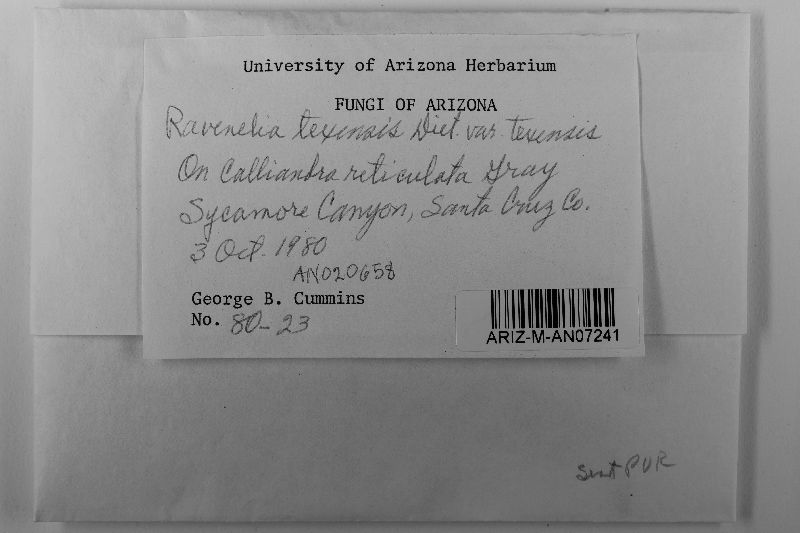 University of Arizona Herbarium
FUNGI OF ARIZONA
Ravenelia texensis Diet. var. texensis
On Calliandra reticulata Gray
Sycamore Canyon, Santa Cruz Co.
3 Oct. 1980
AN020658
George B. Cummins
No. 80-23
ARIZ-M-AN07241
Sent PUR